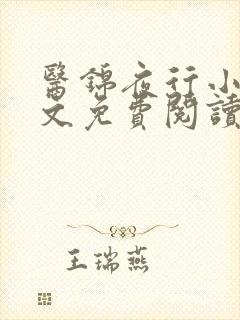 醫錦夜行小
文免費閱讀
王瑞燕